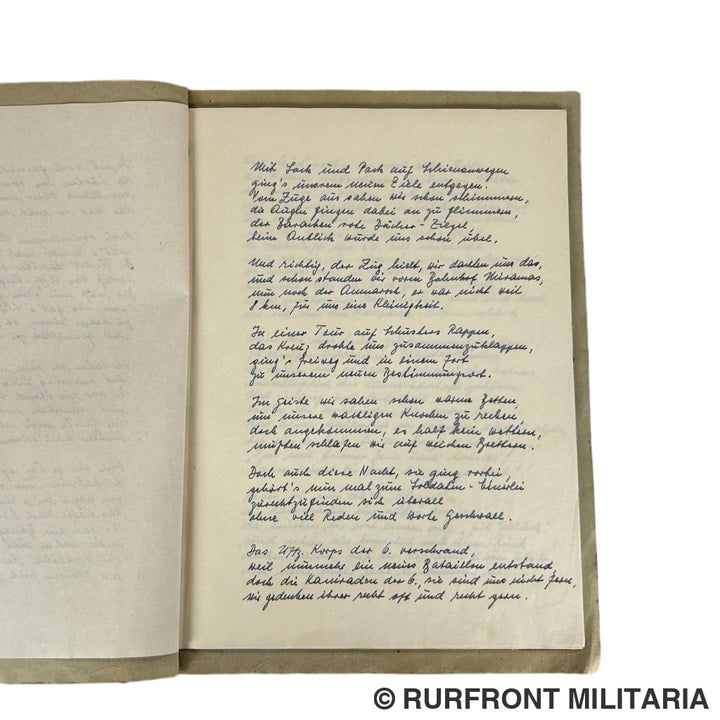 Mit Sack und Pack auf Schienenwegen
ging's unserem neuen Ziele entgegen.
Vom Zuge aus sahen wir schon schimmern,
die Augen fingen dabei an zu flimmern,
der Baracken rote Dächer-Ziegel,
beim Anblick wurde uns schon übel.
Und richtig, der Zug hielt, wir dachten uns das,
und schon standen wir vorm Bahnhof Miramas,
nun noch der Anmarsch, er war nicht weit
8 km, für uns eine Kleinigkeit.
In einer Tour auf Schusters Rappen,
das Kreuz drohte uns zusammenzuklappen,
ging's freiweg und in einem fort
zu unserem neuen Bestimmungsort.
Im Geiste wir sahen schon warme Betten,
um unsere wackligen Knochen zu recken,
doch angekommen, es half kein wettern,
mußten schlafen wir auf weichen Brettern.
Doch auch diese Nacht, sie ging vorbei
gehört's nun mal zum Soldaten-
zurechtzufinden sich überall
ohne viel Reden und Worte Geschwall.
Das Uffz. Korps der 6. verschwand,
weil nunmehr ein neues Bataillon entstand,
doch die Kameraden der 6., sie sind uns nicht fern,
wir gedenken ihrer recht oft und recht gern.
© RURFRONT MILITARIA